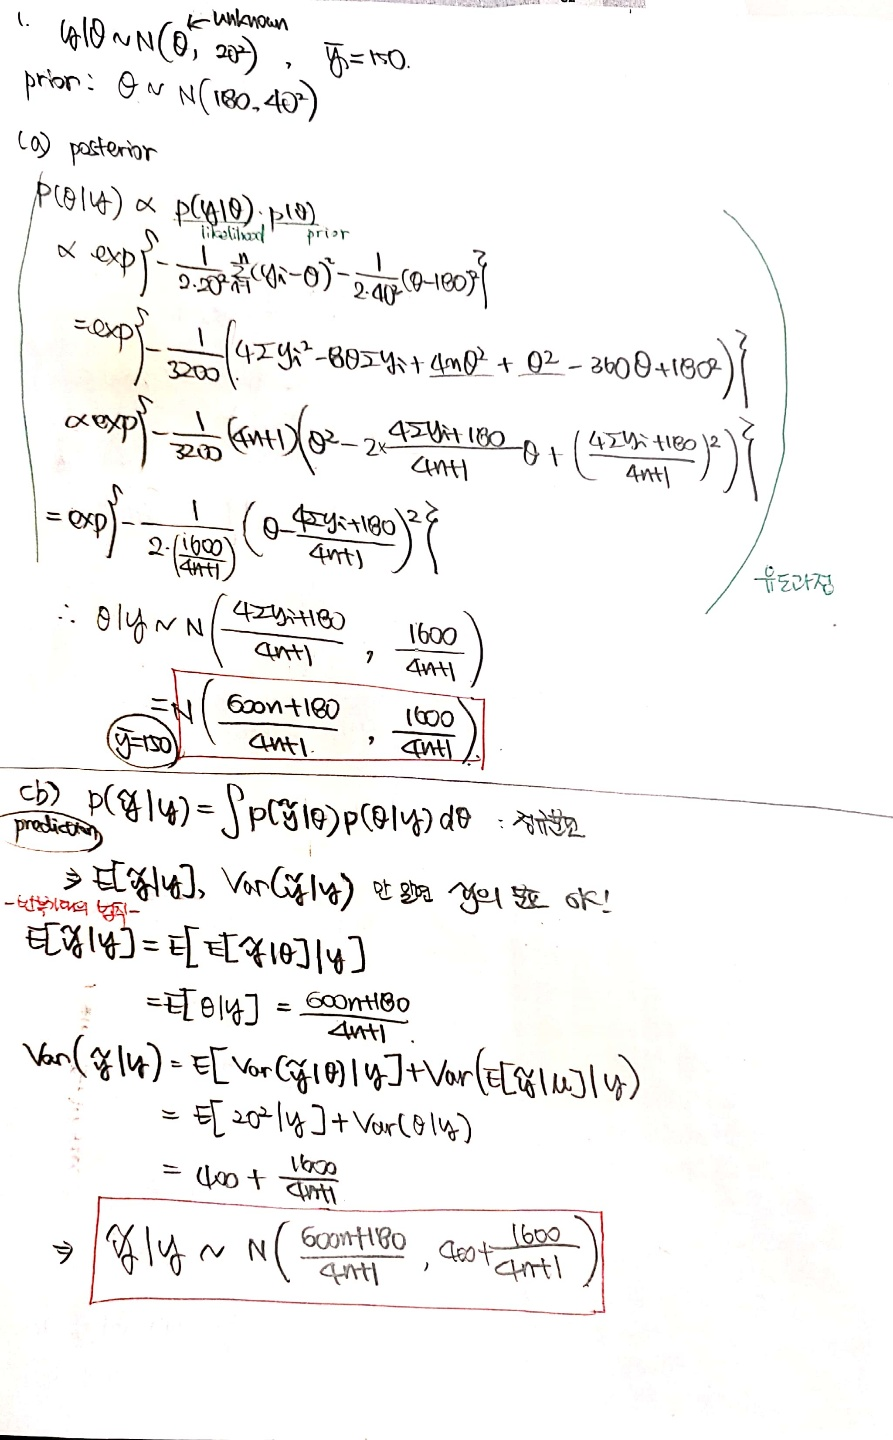 1. y|θ ~ N(θ, 20²), ȳ=150.
← unknown
prior: θ ~ N(180, 40²)
(a) posterior
p(θ|y) ∝ p(y|θ)·p(θ)
likelihood prior
∝ exp{-1/(2·20²) Σ_{i=1}^{n}(yi-θ)² - 1/(2·40²) (θ-180)²}
= exp{-1/3200 (4Σyi² - 8θΣyi + 4nθ² + θ² - 360θ + 180²)}
∝ exp{-1/3200 (4n+1)(θ² - 2× (4Σyi+180)/(4n+1) θ + ((4Σyi+180)/(4n+1))²)}
= exp{-1/(2·(1600/(4n+1))) (θ - (4Σyi+180)/(4n+1))²}
유도과정
∴ θ|y ~ N((4Σyi+180)/(4n+1), 1600/(4n+1))
= N((600n+180)/(4n+1), 1600/(4n+1))
ȳ=150
(b) p(ỹ|y) = ∫p(ỹ|θ)p(θ|y)dθ : 정규분포
prediction
⇒ E[ỹ|y], Var(ỹ|y) 만 알면 ỹ의 분포 OK!
-반복기대의 법칙-
E[ỹ|y] = E[E[ỹ|θ]|y]
= E[θ|y] = (600n+180)/(4n+1).
Var(ỹ|y) = E[Var(ỹ|θ)|y] + Var(E[ỹ|μ]|y)
= E[20²|y] + Var(θ|y)
= 400 + 1600/(4n+1)
⇒ ỹ|y ~ N((600n+180)/(4n+1), 400+1600/(4n+1))